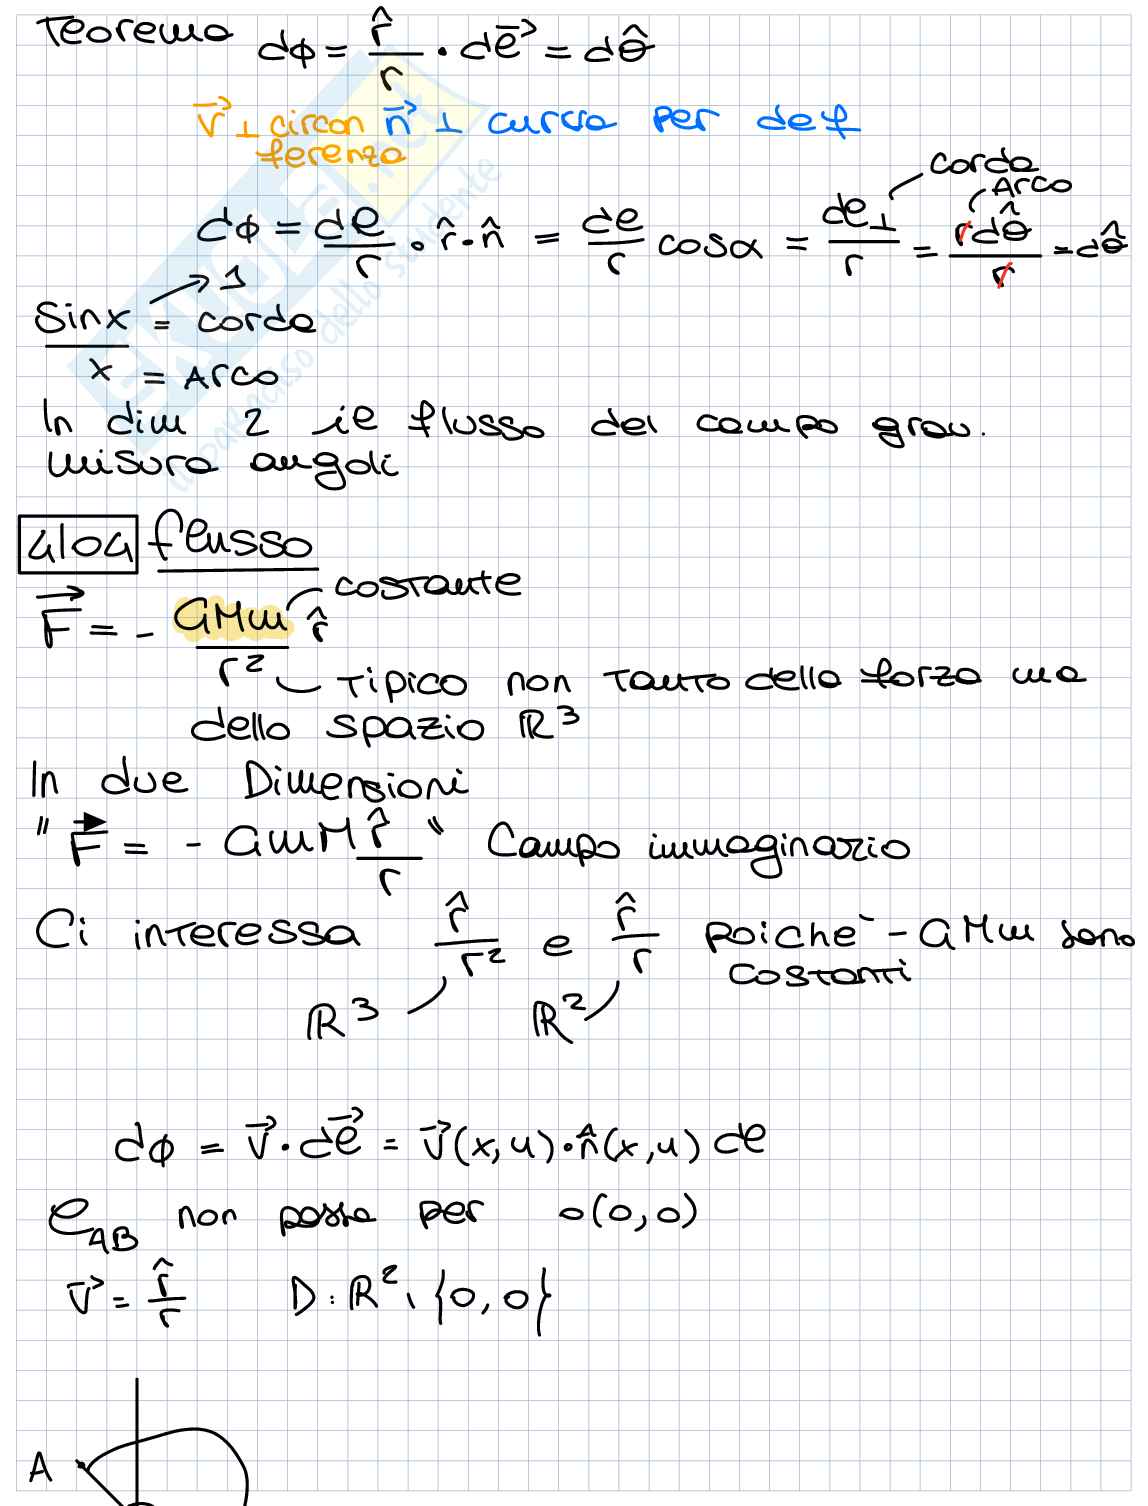 Teorema dϕ = r̂/r · de⃗ = dθ̂
v⃗ ⊥ circon n⃗ ⊥ curva per def
ferenza
corda
Arco
dϕ = de/r · r̂·n̂ = de/r cosα = de⊥/r = rdθ̂/r = dθ̂
1
Sinx = corda
x = Arco
In dim 2 il flusso del campo grav.
misura angoli
4/04 flusso
costante
F⃗ = - GMm/r² r̂
Tipico non tanto della forza ma
dello spazio ℝ³
In due Dimensioni
" F⃗ = - GmM r̂/r " Campo immaginario
Ci interessa r̂/r² e r̂/r poiche - GMm sono
costanti
ℝ³ ℝ²
dϕ = v⃗ · de⃗ = v⃗(x,y)·n̂(x,y) de
e_AB non passa per o(0,0)
v⃗ = r̂/r D: ℝ² \ {0,0}
A
SKUOLA.net
il paradiso dello studente